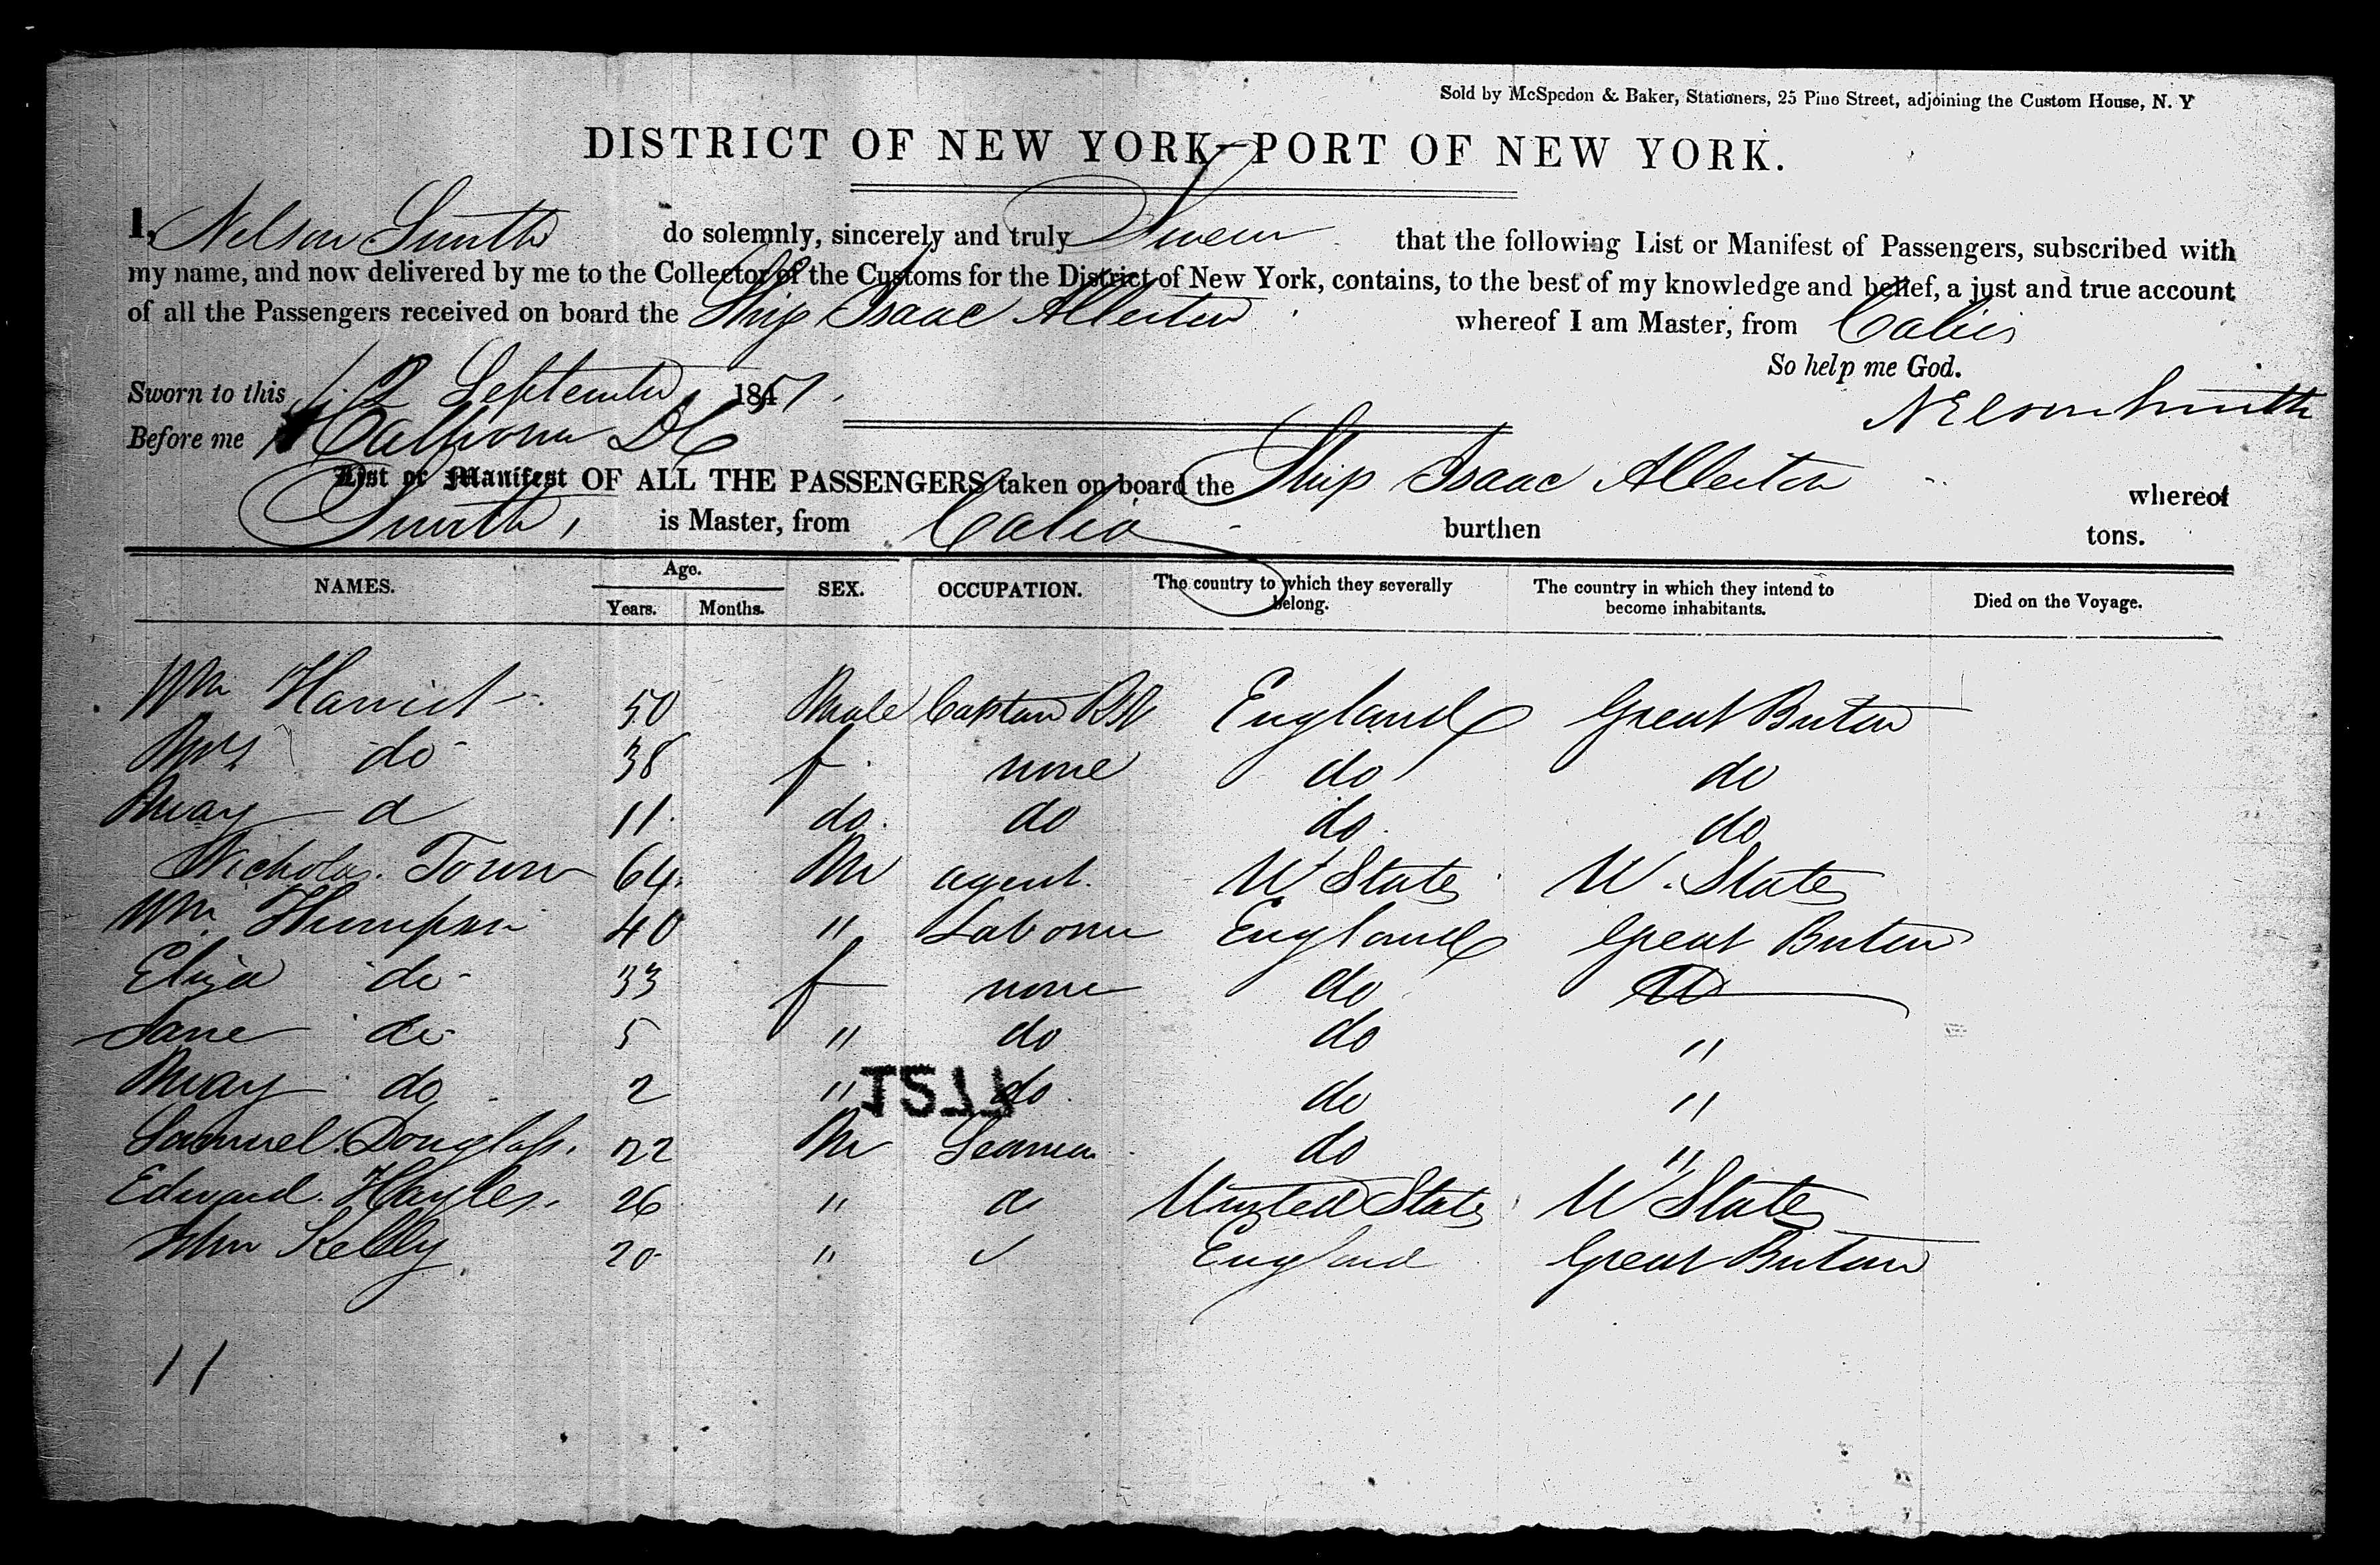 Sold by McSpedon & Baker, Stationers, 25 Pine Street, adjoining the Custom House, N. Y
DISTRICT OF NEW YORK—PORT OF NEW YORK.
I, Nelson Smith do solemnly, sincerely and truly Swear that the following List or Manifest of Passengers, subscribed with
my name, and now delivered by me to the Collector of the Customs for the District of New York, contains, to the best of my knowledge and belief, a just and true account
of all the Passengers received on board the Ship Isaac Allerton whereof I am Master, from
So help me God.
Sworn to this 12 September 1851.
Nelson Smith
Before me Calhoun DC
List or Manifest OF ALL THE PASSENGERS taken on board the Ship Isaac Allerton whereof
Smith, is Master, from burthen tons.
NAMES. Age. Years. Months. SEX. OCCUPATION. The country to which they severally belong. The country in which they intend to become inhabitants. Died on the Voyage.
Wm 50 Male Captain England Great Britain
Mrs do 38 f none do do
Mary d 11. do. do do. do
Nicholas Town 64. M agent. U States U. States
Wm. 40 " Labourer England Great Britain
Eliza do 33 f none do
Jane do 5 " do do "
Mary do 2 " do. do "
Samuel Douglass. 22 M Seaman do "
Edward Hayles. 26 " d United States U States
John Kelly 20 " England Great Britain
11